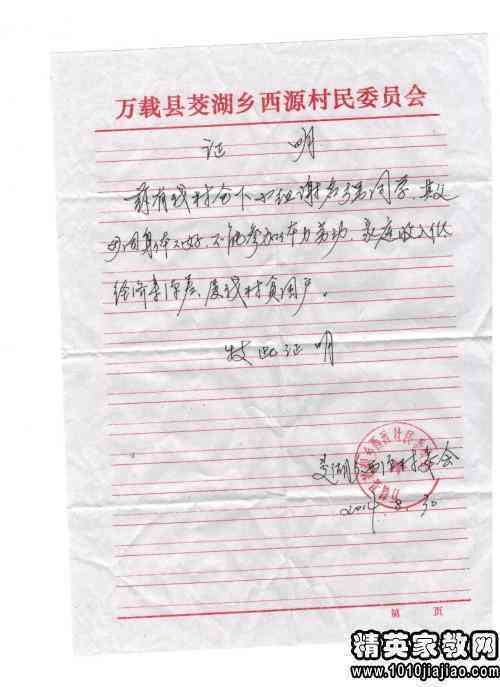 万载县茭湖乡西源村民委员会
证 明
兹有我村合下小组谢 同学，其父
母因身体不好，不能参加体力劳动，家庭收入低
经济 ，属我村贫困户。
特此证明
茭湖乡西源村委会
8.30
第 页
精英家教网
www.1010jiajiao.com